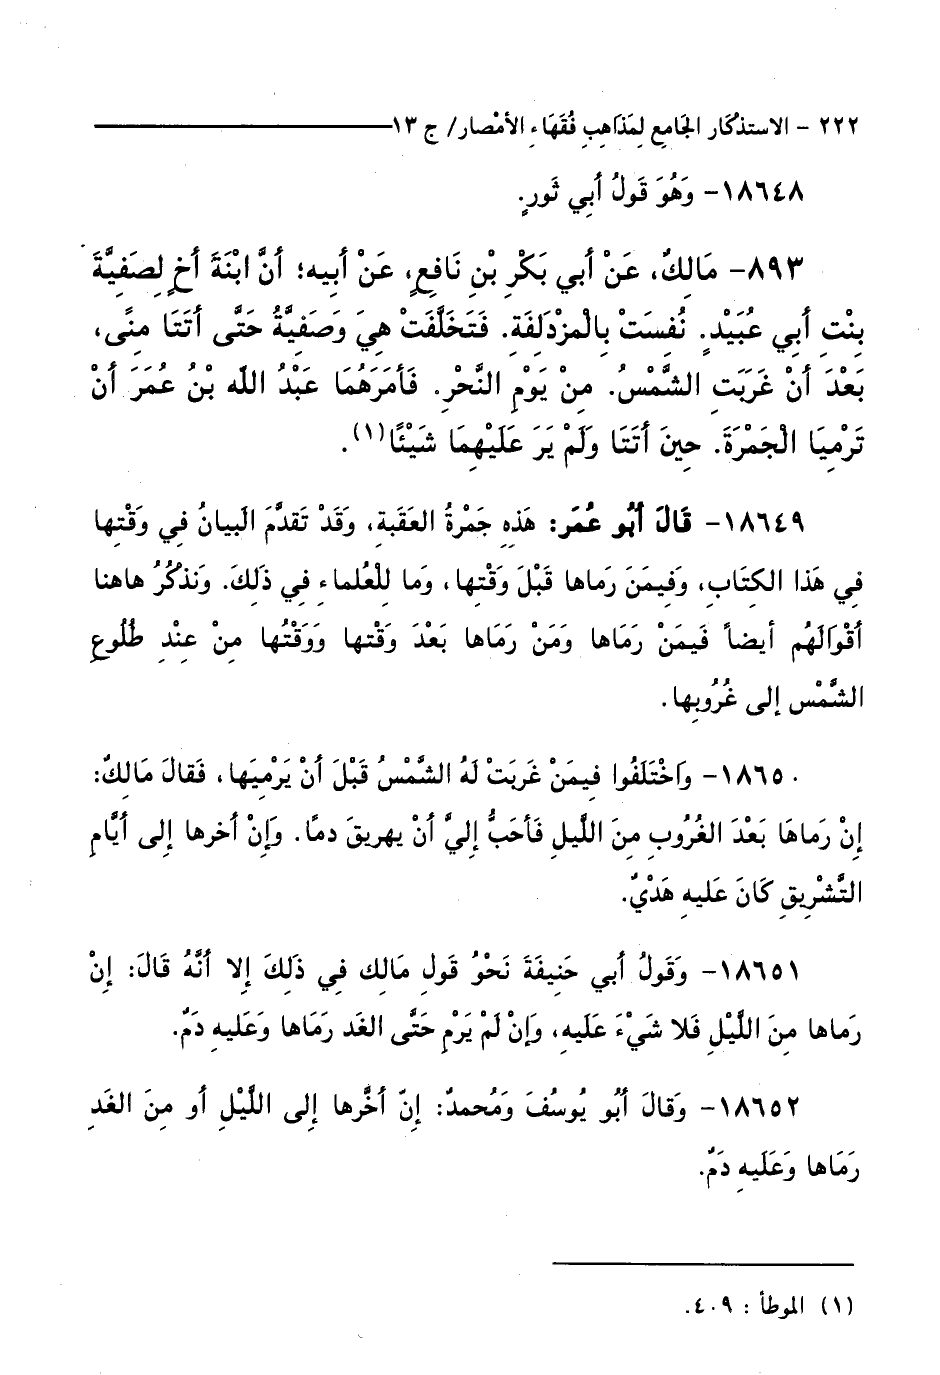 ٢٢٢ - الاستذكار الجامع لمذاهب فُقَهَاءِ الأمْصار/ ج ١٣
١٨٦٤٨- وَهُوَ قَولُ أبِي ثَورٍ.
٨٩٣- مَالِكٌ، عَنْ أبي بَكْرِ بْنِ نَافِعٍ، عَنْ أبِيه؛ أنَّ ابْنَةَ أخٍ لِصَفِيَّةَ
بِنْتِ أبِي عُبَيْدٍ. نُفِسَتْ بِالْمزْدَلِفَة. فَتَخَلَّفَتْ هِيَ وَصَفِيَّةُ حَتَّى أتَتَا مِنًى،
بَعْدَ أنْ غَرَبَتِ الشَّمْسُ. مِنْ يَوْمِ النَّحْرِ. فَأمَرَهُمَا عَبْدُ اللَّه بْنُ عُمَرَ أنْ
تَرْمِيَا الْجَمْرَةَ. حِينَ أتَتَا وَلَمْ يَرَ عَلَيْهِمَا شَيْئًا(١).
١٨٦٤٩- قَالَ أبُو عُمَر: هَذِهِ جَمْرةُ العَقَبة، وَقَدْ تَقدَّمَ البَيانُ فِي وَقْتِها
فِي هَذا الكِتَابِ، وَفِيمَنَ رَماها قَبْلَ وَقْتِها، وَما لِلْعُلماءِ فِي ذَلِكَ. وَنَذكُرُ هاهنا
أقْوَالَهُم أيضاً فَيمَنْ رَمَاها وَمَنْ رَمَاها بَعْدَ وَقْتِها وَوَقْتُها مِنْ عِنْدِ طُلُوعِ
الشَّمْسِ إلى غُرُوبِها.
١٨٦٥٠- وَاخْتَلَفُوا فِيمَنْ غَرَبَتْ لَهُ الشَّمْسُ قَبْلَ أنْ يَرْمِيَها، فَقالَ مَالِكٌ:
إنْ رَماهَا بَعْدَ الغُرُوبِ مِنَ اللَّيلِ فَأحَبُّ إليَّ أنْ يهريقَ دمًا. وَإنْ أخرها إلى أيَّامِ
التَّشْرِيقِ كَانَ عَليهِ هَدْيٌ.
١٨٦٥١- وَقَولُ أبي حَنِيفَةَ نَحْوُ قَولِ مَالِك فِي ذَلِكَ إلا أنَّهُ قَالَ: إنْ
رَماها مِنَ اللَّيْلِ فَلا شَيْءَ عَلَيهِ، وَإنْ لَمْ يَرْمِ حَتَّى الغَد رَمَاها وَعَليهِ دَمٌ.
١٨٦٥٢- وَقالَ أبُو يُوسُفَ وَمُحمدٌ: إنّ أخَّرها إلى اللَّيْلِ أو مِنَ الغَدِ
رَمَاها وَعَلَيهِ دَمٌ.
(١) الموطأ : ٤٠٩.